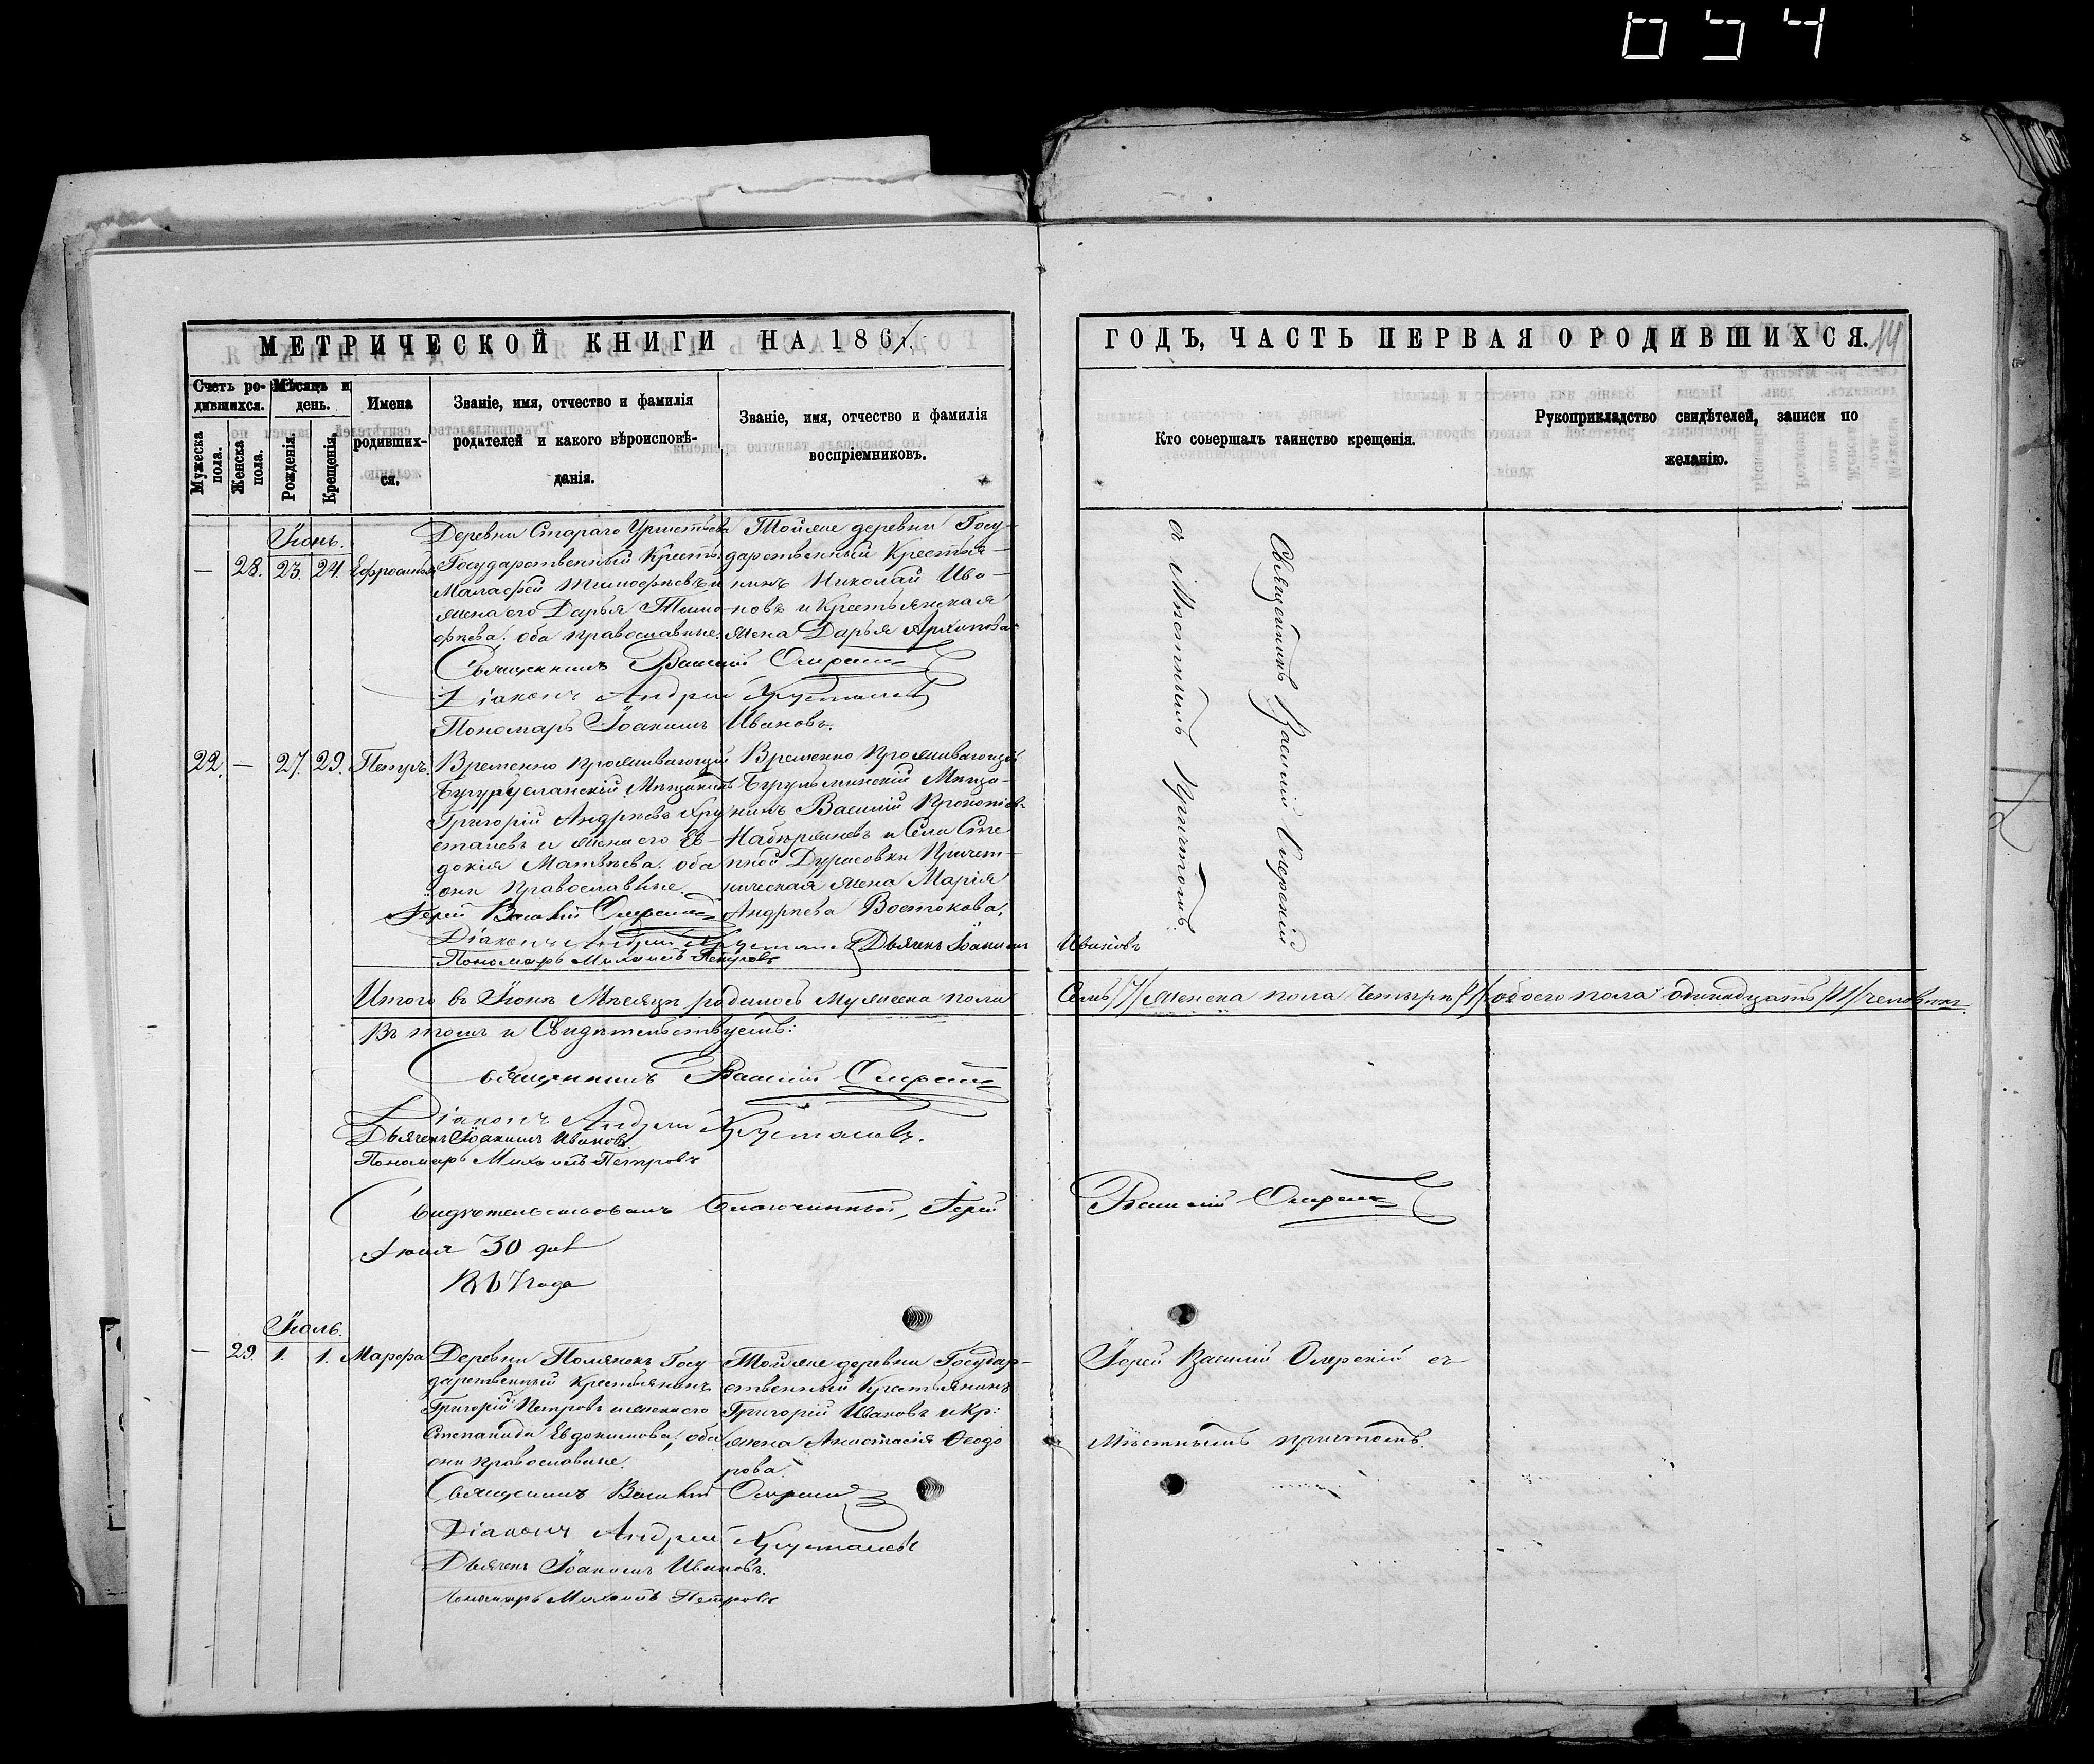 054
МЕТРИЧЕСКОЙ КНИГИ НА 1867.
Счетъ ро-
дившихся.
Мужеска
пола.
Женска
пола.
Мѣсяцъ и
день.
Рожденія.
Крещенія.
Имена
родивших-
ся.
Званіе, имя, отчество и фамилія
родителей и какого вѣроисповѣ-
данія.
Званіе, имя, отчество и фамилія
воспріемниковъ.
Іюнь.
— 28. 23. 24. Ефросинья
Деревни Стараго
Государственный Крестьян:
Малафей Тимофѣевъ и
жена его Дарья Тимо-
фѣева. оба православные.
Тойже деревни Госу-
дарственный Крестья-
нинъ Николай Ива-
новъ и Крестьянская
жена Дарья Архипова
Священникъ Василій
Діаконъ Андрей Хрусталевъ
Пономарь Іоакимъ Ивановъ.
22. — 27. 29. Петръ.
Временно проживающій
Бугурусланскій Мѣщанинъ
Григорій Андреевъ Хру
сталевъ и жена его Ев-
докія Матвѣева. оба
они православные.
Временно проживающій
Бугульминскій Мѣща-
нинъ Василій Прокопіев
и Села Сте
пной Дурасовки Причет-
ническая жена Марія
Андреева Востокова,
Іерей Василій
Діаконъ Андрей Хрусталевъ Дьячекъ Іоакимъ
Пономарь Михаилъ Петровъ
Итого въ Іюнѣ Мѣсяцѣ родилось мужеска пола
Въ томъ и Свидѣтельствуемъ:
Священникъ Василій
Діаконъ Андрей Хрусталевъ.
Дьячекъ Іоакимъ Ивановъ
Пономарь Михаилъ Петровъ
Свидѣтельствовалъ Благочинный, Іерей
30 дня
1867 года
Іюль.
— 29. 1. 1. Марфа
Деревни Полянокъ Госу
дарственный Крестьянинъ
Григорій Петровъ и жена его
Степанида Евдокимова, оба
они православные.
Тойже деревни Государ-
ственный Крестьянинъ
Григорій Ивановъ и Кр:
жена Анастасія Ѳеодо
рова.
Священникъ Василій
Діаконъ Андрей Хрусталевъ
Дьячекъ Іоакимъ Ивановъ.
Пономарь Михаилъ Петровъ
ГОДЪ, ЧАСТЬ ПЕРВАЯ О РОДИВШИХСЯ. 14
Кто совершалъ таинство крещенія.
Рукоприкладство свидѣтелей, записи по
желанію.
Священникъ Василій
съ Мѣстнымъ Причтомъ
Ивановъ
Семь /7/ женска пола Четыре /4/ обоего пола одинадцать /11/ человѣкъ.
Василій
Іерей Василій съ
Мѣстнымъ причтомъ.